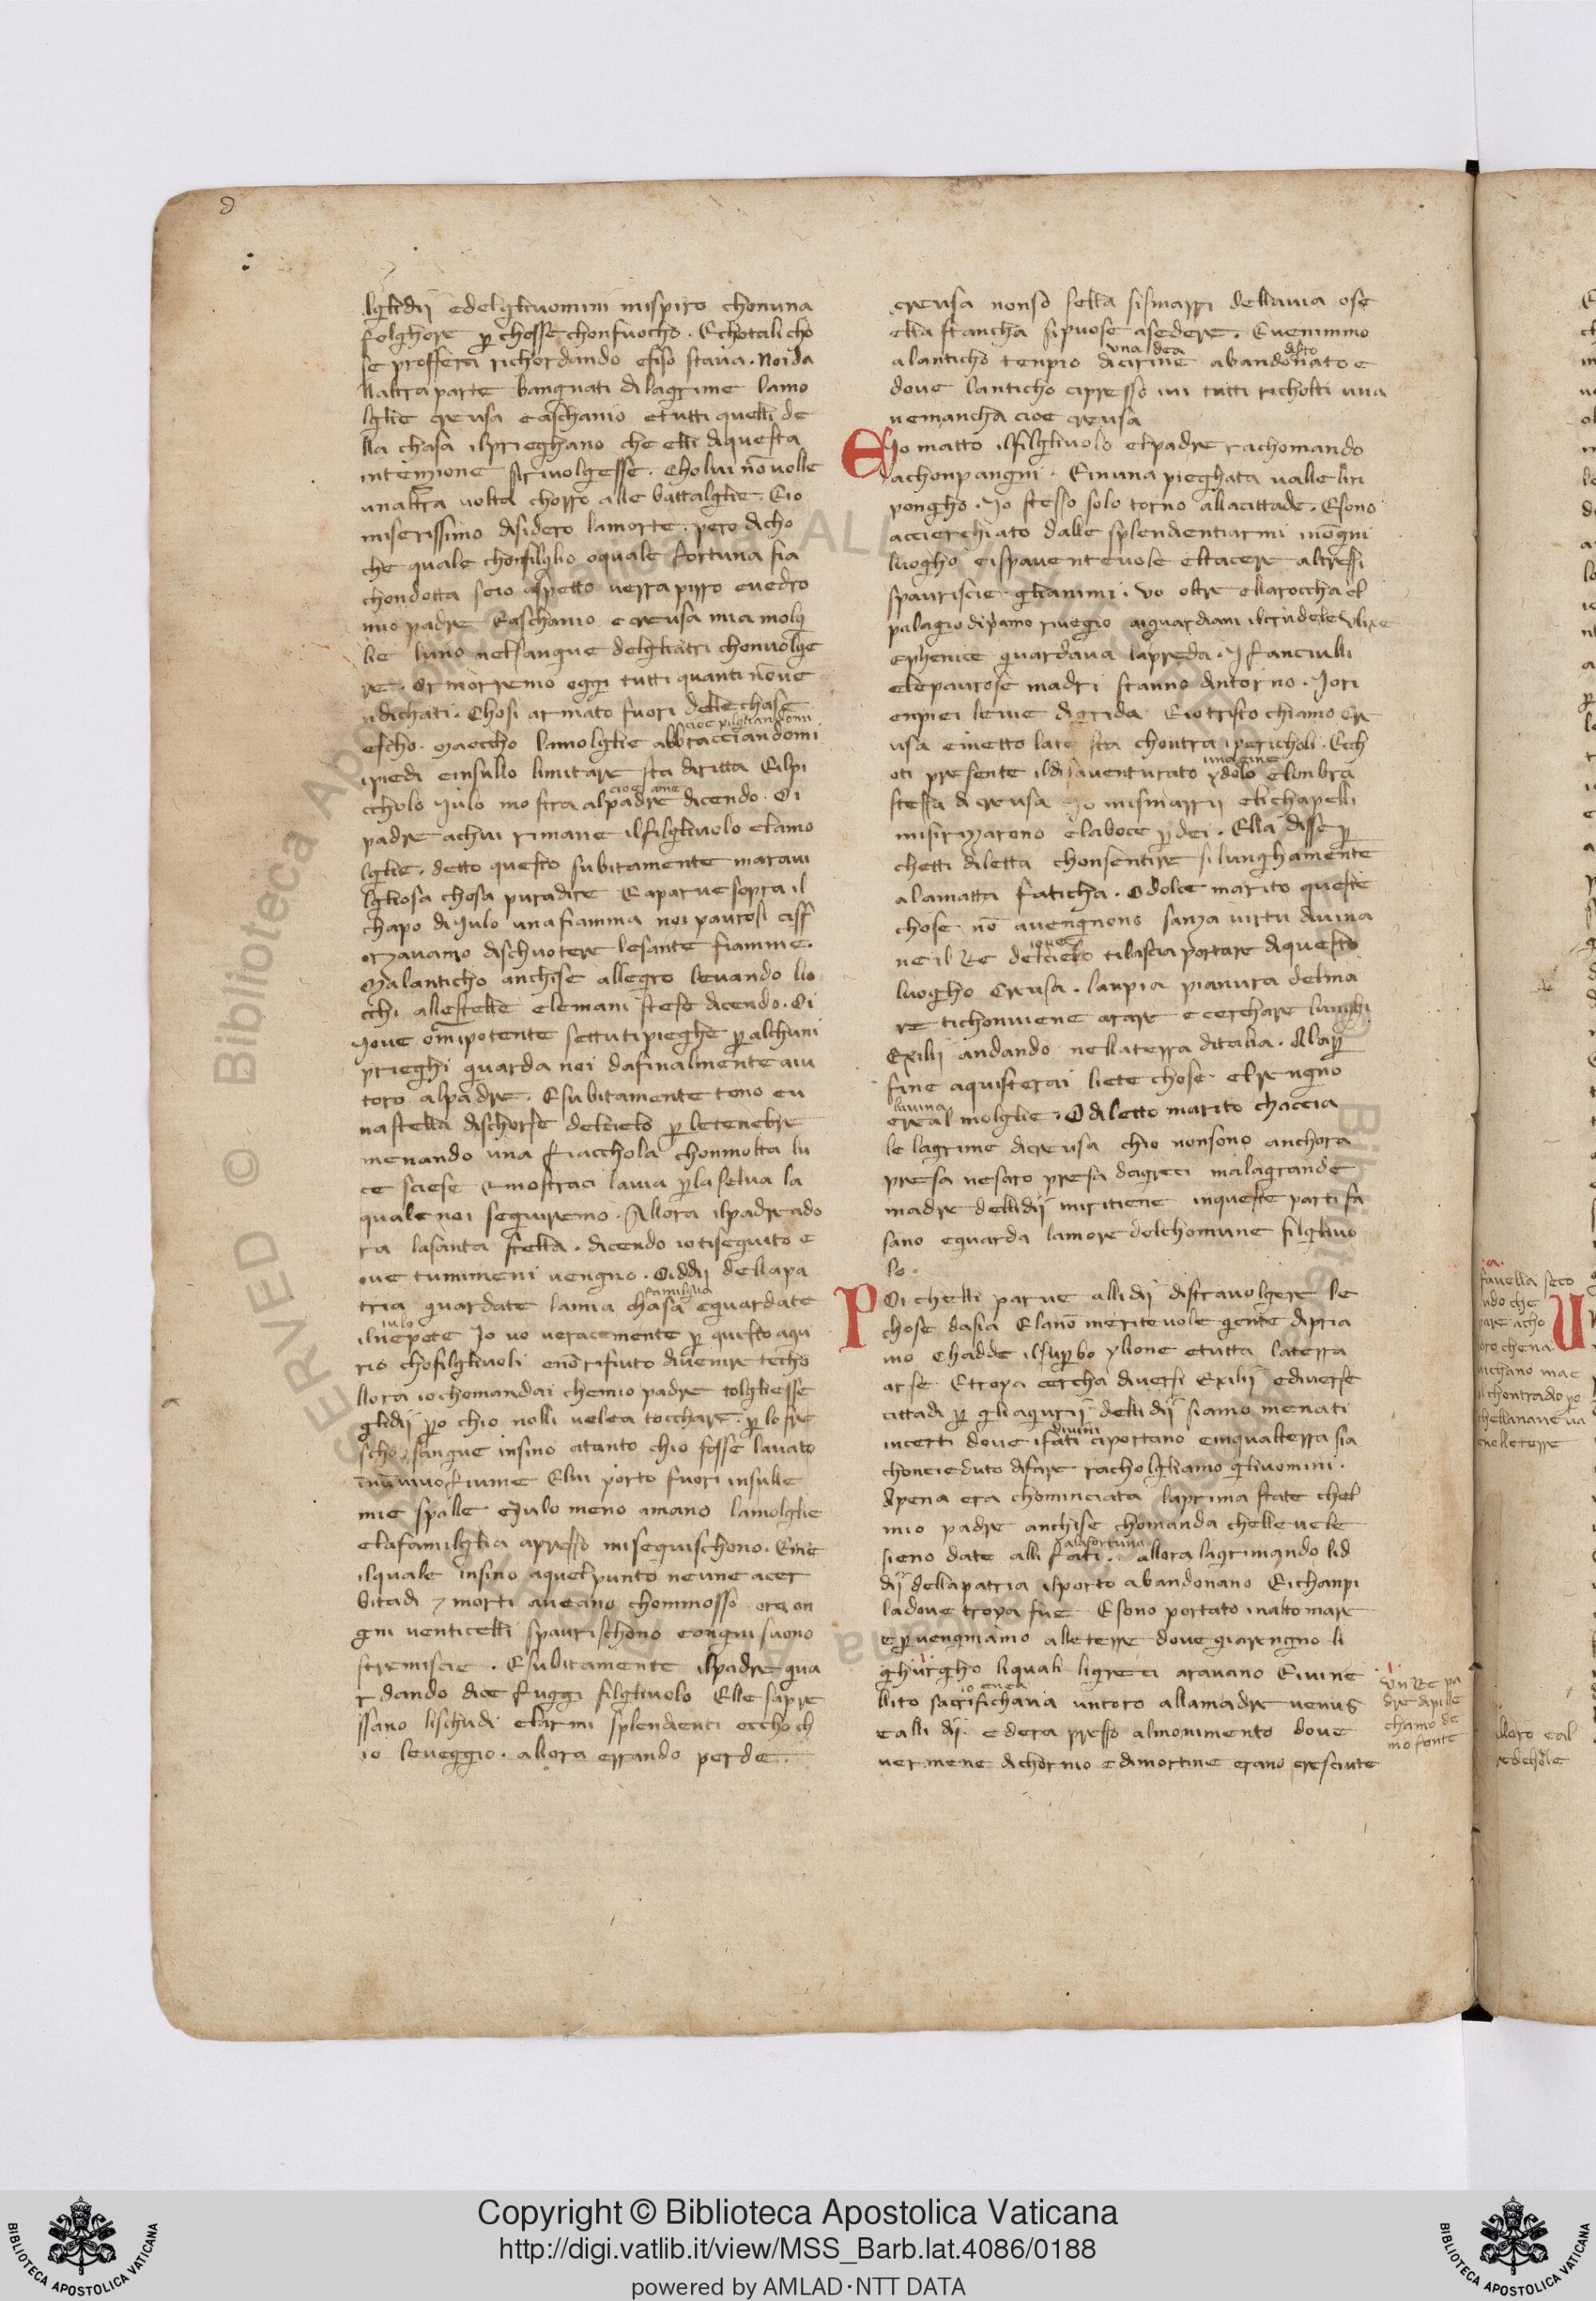 lglidij edelglivomini mispiro chonuna
folghore p chosse chonfuocho. Echotali cho
se proffera richordando efiso staua. Noi da
llaltra parte bangnati dilagrime lamo
lglie creusa easchanio etutti quelli de
lla chasa ilprieghano che elli diquesta
intenzione sirivolgesse. Cholui nō volle
unaltra volta chorro alle battalglie. Eio
miserissimo disidero lamorte. pero dicho
che quale chonsilglio oquale fortuna sia
chondotta seio aspetto verra pirro evedro
mio padre Easchanio ecreusa mia molg
lie luno nelsangue delglialtri chonvolge
re. Or morremo oggi tutti quanti nō ve
ndichati. Chosi armato fuori delle chase
cioe pilgliandomi
escho. Maeccho lamolglie abbracciandomi
ipiedi einsullo limitare sta diritta Eilpi
cioe ame
ccholo Julo mostra alpadre dicendo. Oi
padre achui rimane ilfilgliuolo elamo
lglie. detto questo subitamente maravi
lgliosa chosa puradire Eaparve sopra il
chapo di Julo una fiamma noi paurosi cisf
orzavamo dischuotere lesante fiamme.
Malanticho anchise allegro levando lio
cchi allestelle elemani stese dicendo. Oi
Jove omipotente settutipieghe p alchuni
prieghi guarda noi dafinalmente aiu
toro alpadre. Esubitamente tono eu
nastella dischorse delcielo p letenebre
menando una fiacchola chonmolta lu
ce sciese emostraci lavia p la selva la
quale noi seguiremo. Allora ilpadre ado
ra lasanta stella. dicendo iotiseguito e
ove tummeni vengno. Oiddij dellapa
familglia
tria guardate lamia chasa eguardate
iulo
ilnepote Jo vo veracemente p questo agu
rio chofilgliuoli enō rifiuto divenire techo
llora iochomandai chemio padre tolgliesse
glidij po chio nolli volea tocchare. p lo fre
scho sangue insino atanto chio fosse lavato
inuvivo fiume Elui porto fuori insulle
mie spalle eJulo meno amano lamolglie
elafamilglia apresso miseguischono. Eme
ilquale insino aquelpunto neune acer
bitadi 7 morti aveano chommosso ora on
gni venticelli spaurischono eongni suono
stremiscie. Esubitamente ilpadre gua
rdando dice fuggi filgliuolo Elle sapre
ssano lischudi elarmi splendienti eccho ch
io leveggio. allora errando perde
creusa nonso sella sismarri dellavia ose
ella stancha sipuose asedere. Evenimmo
una dea disto
alanticho tenpio dicirine abandonato e
dove lanticho cipresso ivi tutti richolti una
nemancha cioe creusa
EJo matto ilfilgliuolo elpadre rachomando
achonpangni. Einuna pieghata valle liri
pongho. Jo stesso solo torno allacittade. Esono
accierchiato dalle splendientiarmi inōgni
luogho eispaventevole eltacere altressi
spauriscie glianimi. Vo oltre ellaroccha el
palagio dipriamo riveggio aiguardiani ilcrudele Ulixe
ephenice guardava lapreda. I fanciulli
elepaurose madri stanno dintorno. Jori
enpiei levie digrida Eiotristo chiamo Cre
usa emetto la testa chontra ipericholi. Ecch
imagine
oti presente ildisaventurato ydolo elonbra
stessa dicreusa Jo mismarrii elichapelli
misirizarono elaboce p dei. Ella disse p
chetti diletta chonsentire silunghamente
alamatta faticha. O dolce marito queste
chose nō avengnono sanza virtu divina
iove
ne il Re delcielo tilascia portare diquesto
luogho Creusa. lanpia pianura delma
re tichonviene arare ecerchare lunghi
Exilij andando nellaterra ditalia. Alla p
fine aquisterai liete chose elrengno
lavina
ereal molglie. O diletto marito chaccia
le lagrime dicreusa chio nonsono anchora
presa nesaro presa dagreci malagrande
madre dellidij miritiene inqueste parti fa
sano eguarda lamore delchomune filgliuo
lo.
POi chelli parve allidij distravolgere le
chose dasia Elanō meritevole gente dipria
mo Chadde ilsupbo ylione etutta laterra
arse Etroya cercha diversi Exilij ediverse
cittadi p gliagurij delli dij siamo menati
divini
incerti dove ifati ciportano einqualterra sia
choncieduto difare racholgliamo glivomini.
Apena era chominciata laprima state chel
mio padre anchise chomanda chellevele
alafortuna
sieno date alli fati. allora lagrimando lid
dij dellapatria ilporto abandonano Eichanpi
ladove troya fue Esono portato inalto mare
epvengniamo alleterre dove giarengno li
ghurgho liquali ligreci aravano Eivine
io enea
llito sacrifichava untoro allamadre venus
ealli dij. edera presso almonimento dove
vermene dichornio edimortine erano cresciute
Un Re pa
dre dipille
chamo de
mo fonte
.a.
favella seco
ndo che
pare acho
loro chena
vichano mae
ilchontradio po
chellanave va
nolleterre
Copyright © Biblioteca Apostolica Vaticana
http://digi.vatlib.it/view/MSS_Barb.lat.4086/0188
powered by AMLAD·NTT DATA